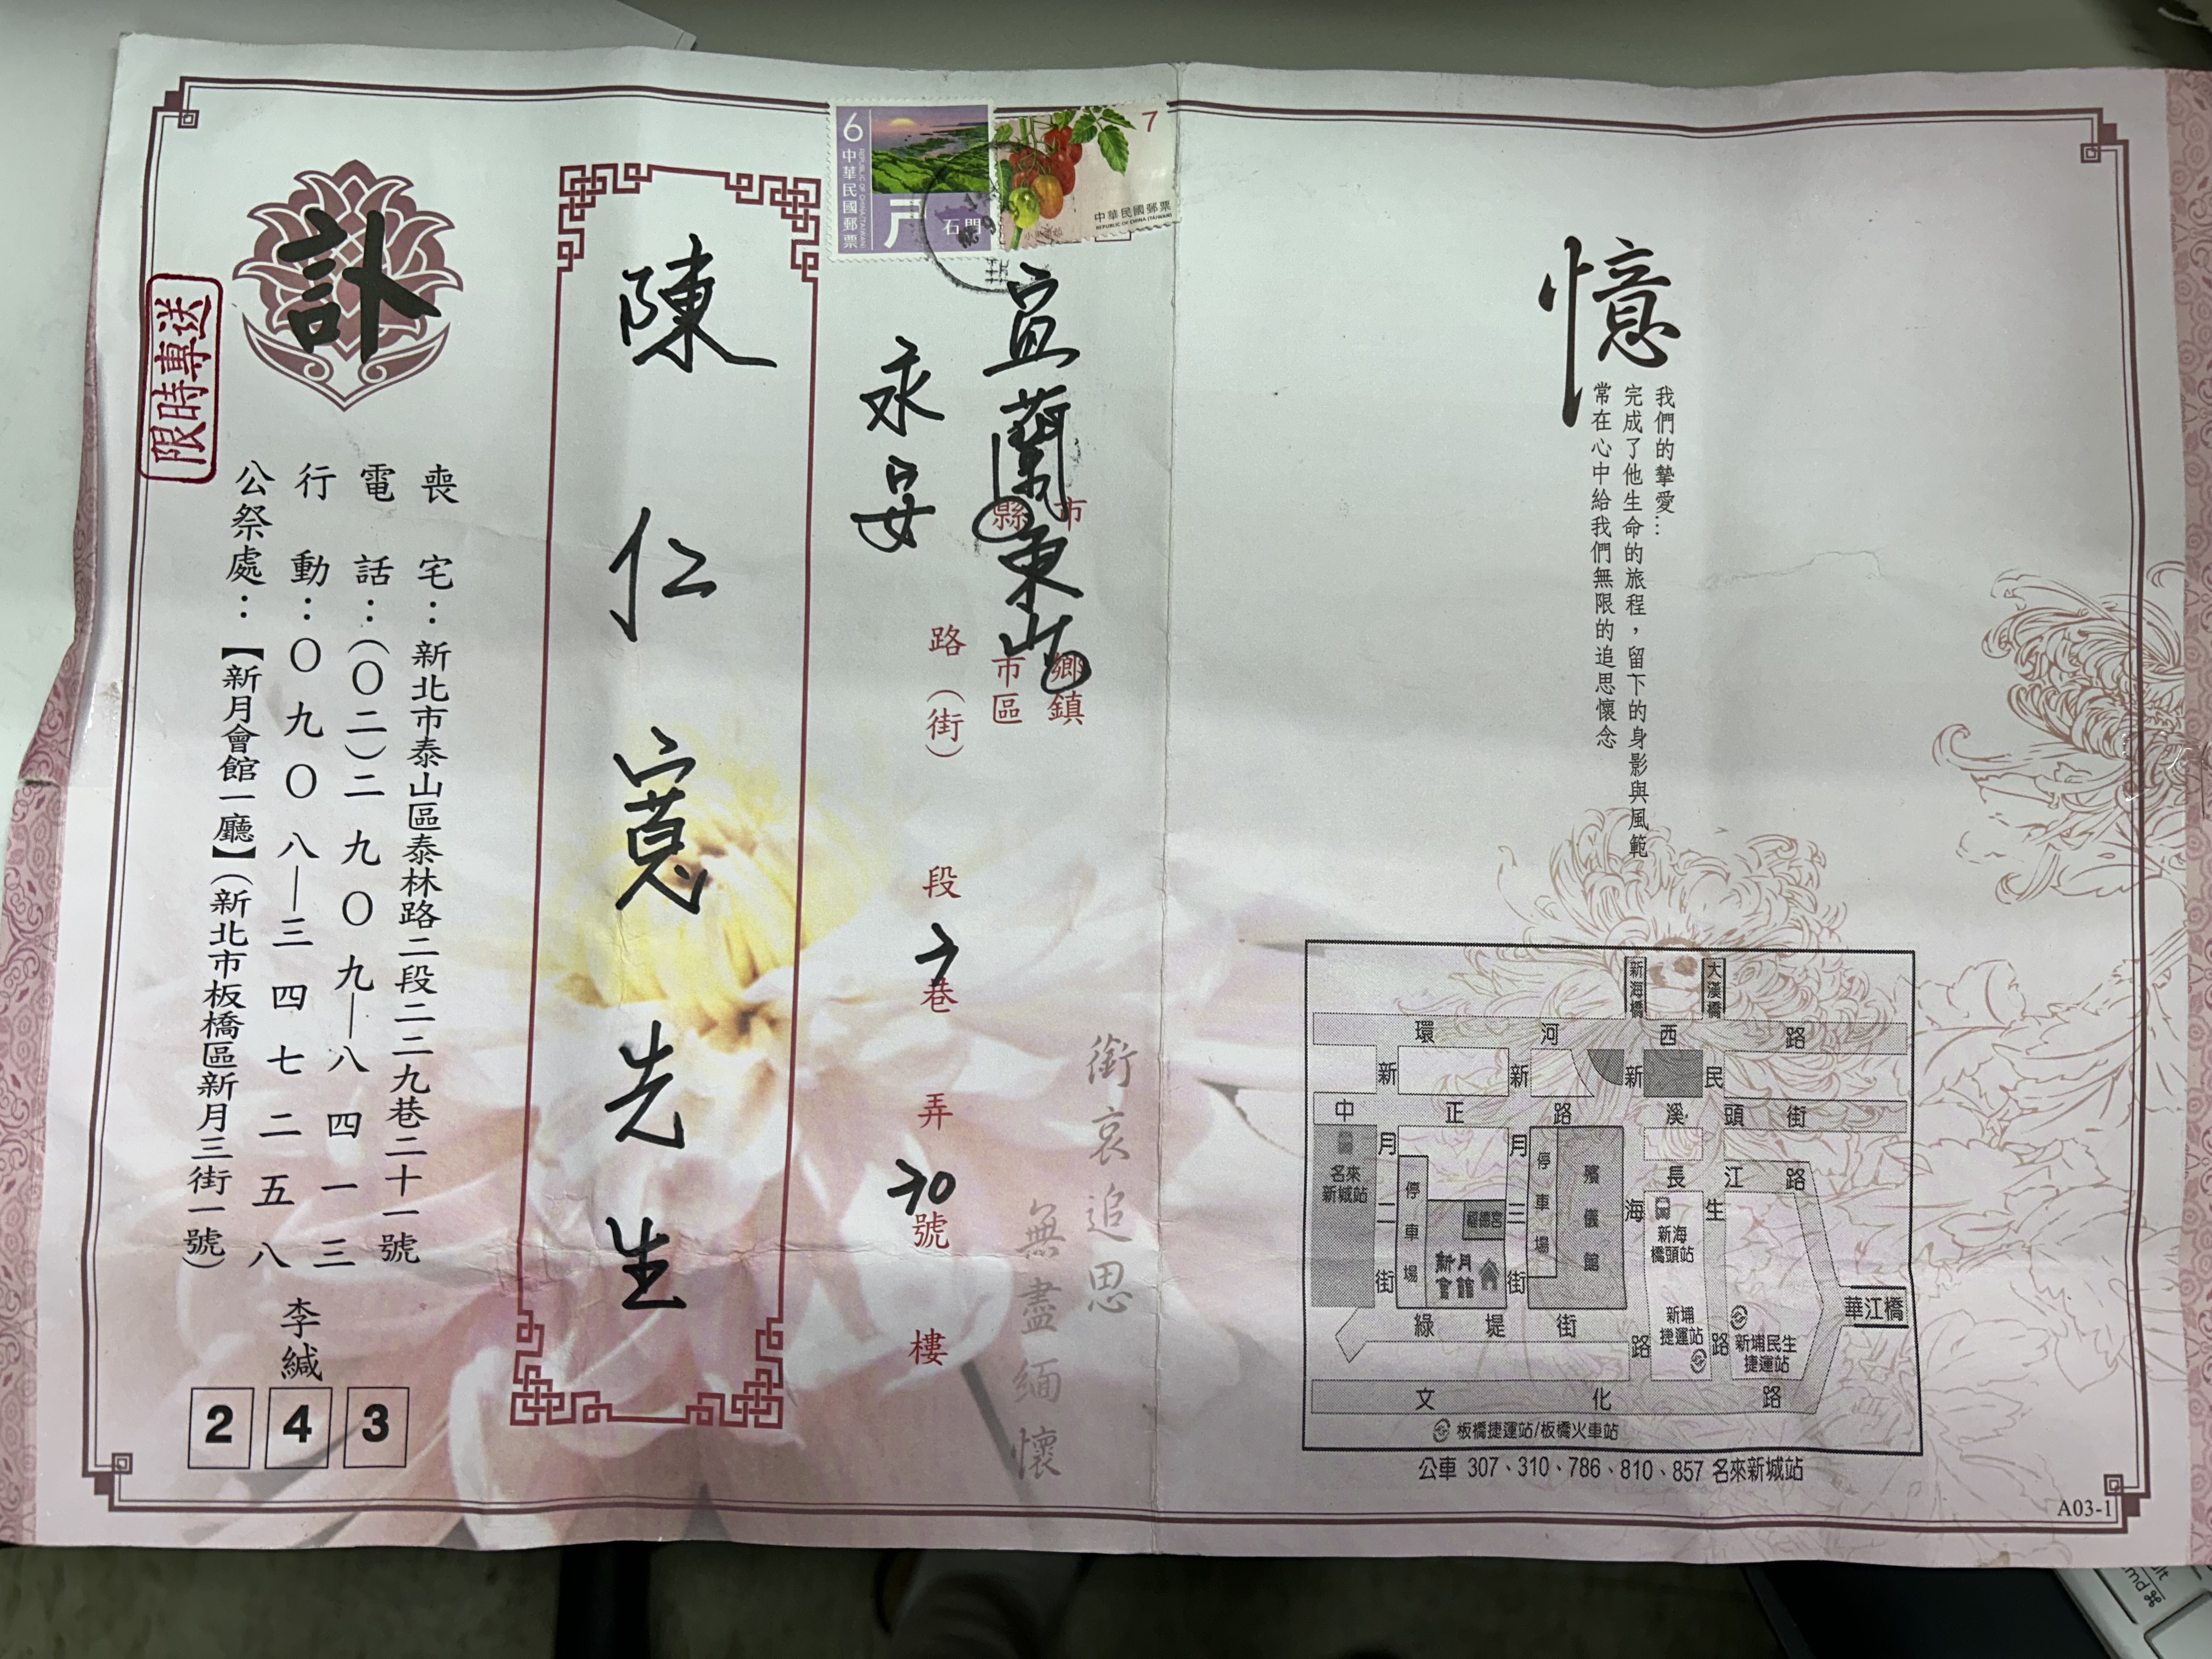 憶
我們的摯愛…
完成了他生命的旅程，留下的身影與風範
常在心中給我們無限的追思懷念
新海橋
大漢橋
環河西路
新月二街
新月三街
新海路
民生路
中正路
溪頭街
長江路
名來新城站
停車場
福德宮
新月會館
停車場
殯儀館
新海橋頭站
新埔捷運站
新埔民生捷運站
華江橋
綠堤街
文化路
板橋捷運站/板橋火車站
公車 307、310、786、810、857 名來新城站
A03-1
6
中華民國郵票
REPUBLIC OF CHINA (TAIWAN)
石門
7
中華民國郵票
REPUBLIC OF CHINA (TAIWAN)
銜哀追思
無盡緬懷
宜蘭縣市東山鄉鎮市區
永安路（街）段7巷弄70號樓
陳仁寬先生
訃
限時專送
喪宅：新北市泰山區泰林路二段二二九巷二十一號
電話：（〇二）二九〇九—八四一三
行動：〇九〇八—三四七二五八
公祭處：【新月會館一廳】（新北市板橋區新月三街一號）
李緘
2 4 3